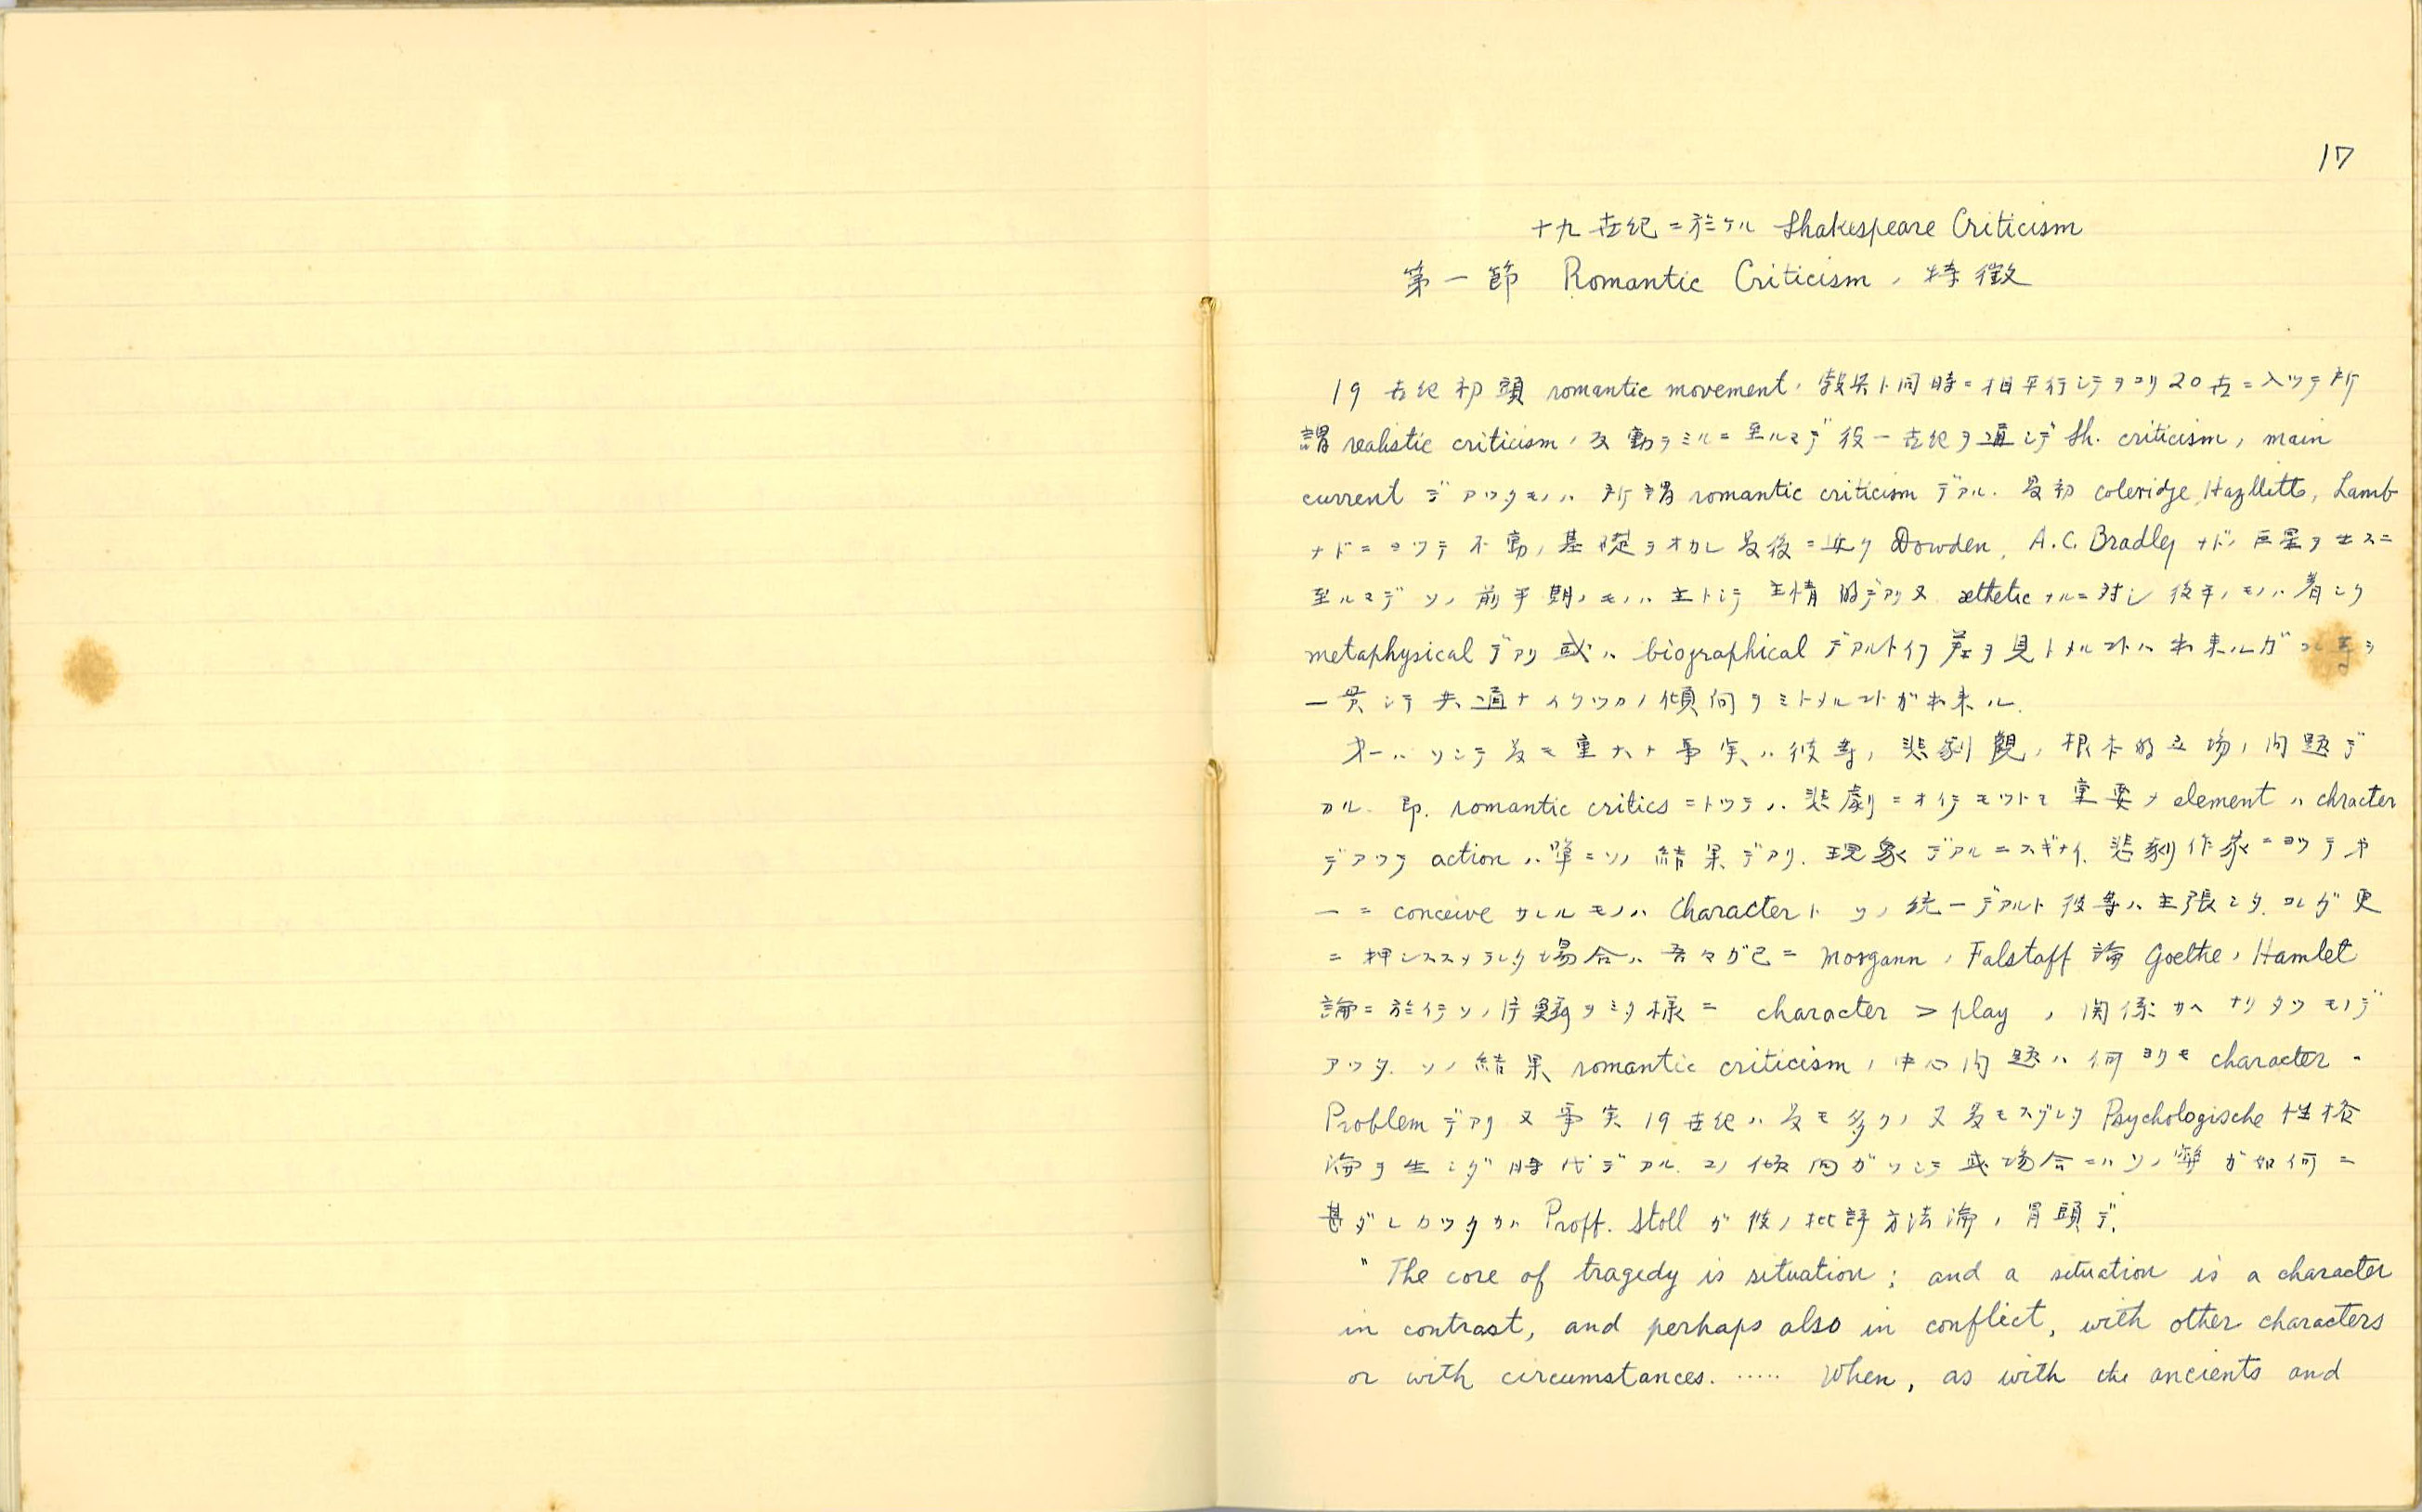 17
十九世紀ニ於ケル Shakespeare Criticism
第一節 Romantic Criticism ノ特徴
19世紀初頭 romantic movement ノ勃興ト同時ニ相平行シテヲコリ20世ニ入ツテ所
謂 realistic criticism ノ反動ヲミルニ至ルマデ後一世紀ヲ通シデ Sh. criticism ノ main
current デアツタモノハ所謂 romantic criticism デアル. 最初 coleridge, Hazlitt, Lamb
ナドニヨツテ不動ノ基礎ヲオカレ最後ニ近ク Dowden, A.C. Bradley ナドノ巨星ヲ出スニ
至ルマデソノ前半期ノモノハ主トシテ主情的デアリ又 æthetic ナルニ対シ後半ノモノハ著シク
metaphysical デアリ或ハ biographical デアルト云フ差ヲ見トメルコトハ出来ルガ コレ等ヲ
一貫シテ共通ナイクツカノ傾向ヲミトメルコトガ出来ル.
才一ハソシテ最モ重大ナ事実ハ彼等ノ悲劇観ノ根本的立場ノ問題デ
アル. 即. romantic critics ニトツテハ悲劇ニオイテモツトモ重要ナ element ハ chracter
デアツテ action ハ単ニソノ結果デアリ. 現象デアルニスギナイ. 悲劇作家ニヨツテ才
一ニ conceive サレルモノハ Character ト ソノ統一デアルト彼等ハ主張シタ. コレガ更
ニ押シススメラレタ場合ハ吾々ガ已ニ Morgann ノ Falstaff 論 Goethe ノ Hamlet
論ニ於イテソノ ヲミタ様ニ character > play ノ関係サヘナリタツモノデ
アツタ. ソノ結果 romantic criticism ノ中心問題ハ何ヨリモ character -
Problem デアリ又事実19世紀ハ最モ多クノ又最モスグレタ Psychologische 性格
論ヲ生ンダ時代デアル. コノ傾向ガソシテ或場合ニハソノ弊ガ如何ニ
甚ダシカツタカハ Proff. Stoll ガ彼ノ批評方法論ノ冒頭デ.
"The core of tragedy is situation; and a situation is a character
in contrast, and perhaps also in conflict, with other characters
or with circumstances. ..... When, as with the ancients and